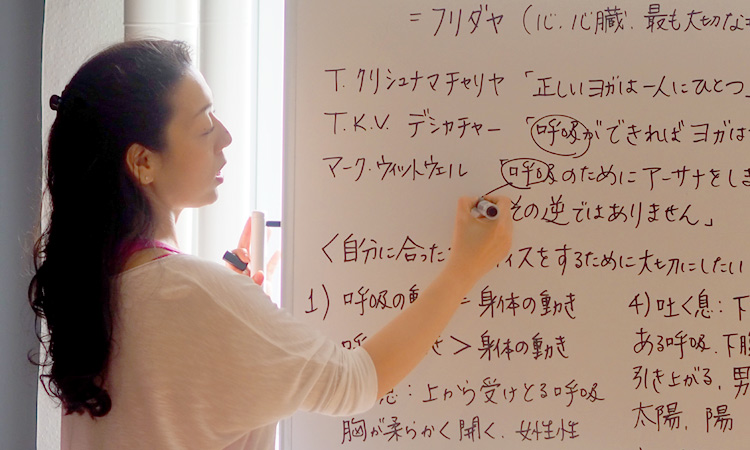 = フリダヤ (心、心臓、最も大切な
T. クリシュナマチャリヤ 「正しいヨガは一人にひとつ」
T.K.V. デシカチャー 「呼吸ができればヨガは
マーク・ウィットウェル 「呼吸のためにアーサナをしま
その逆ではありません」
<自分に合った ィスをするために大切にしたい
1) 呼吸の動 = 身体の動き
呼 > 身体の動き
息: 上から受けとる呼吸
胸が柔らかく開く、女性性
4) 吐く息: 下
ある呼吸、下腹
引き上がる、男
太陽、陽